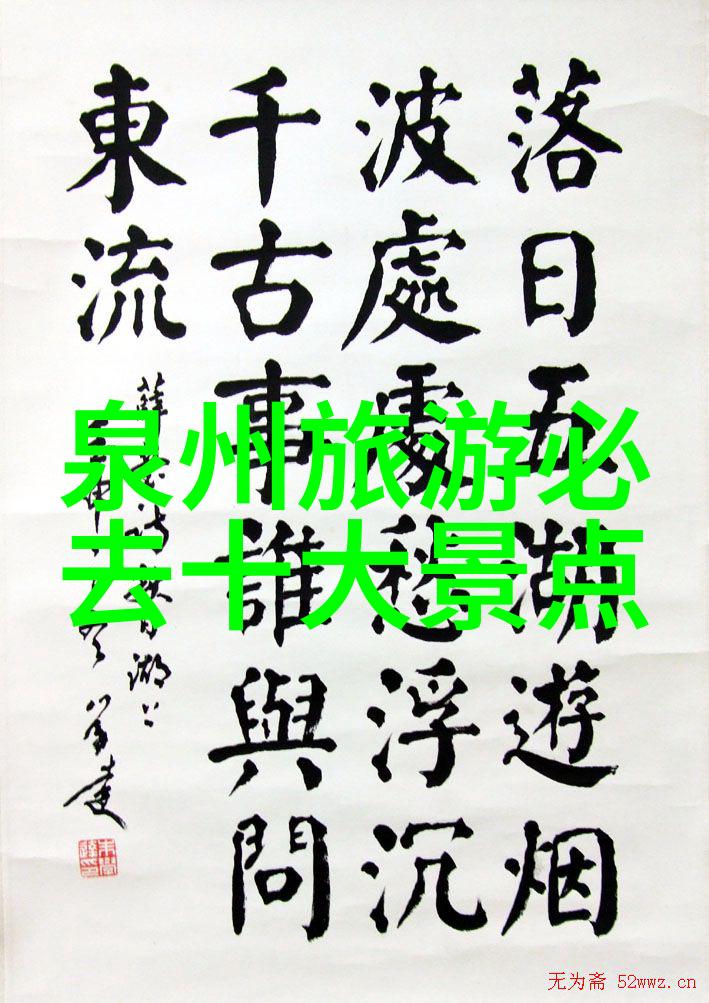 落日五湖遊烟
波處處愁浮沉
千古事誰與問
東流
薛瑩詩秋日湖上
泉州旅游必
去十大景点
无为斋 52wwz.cn